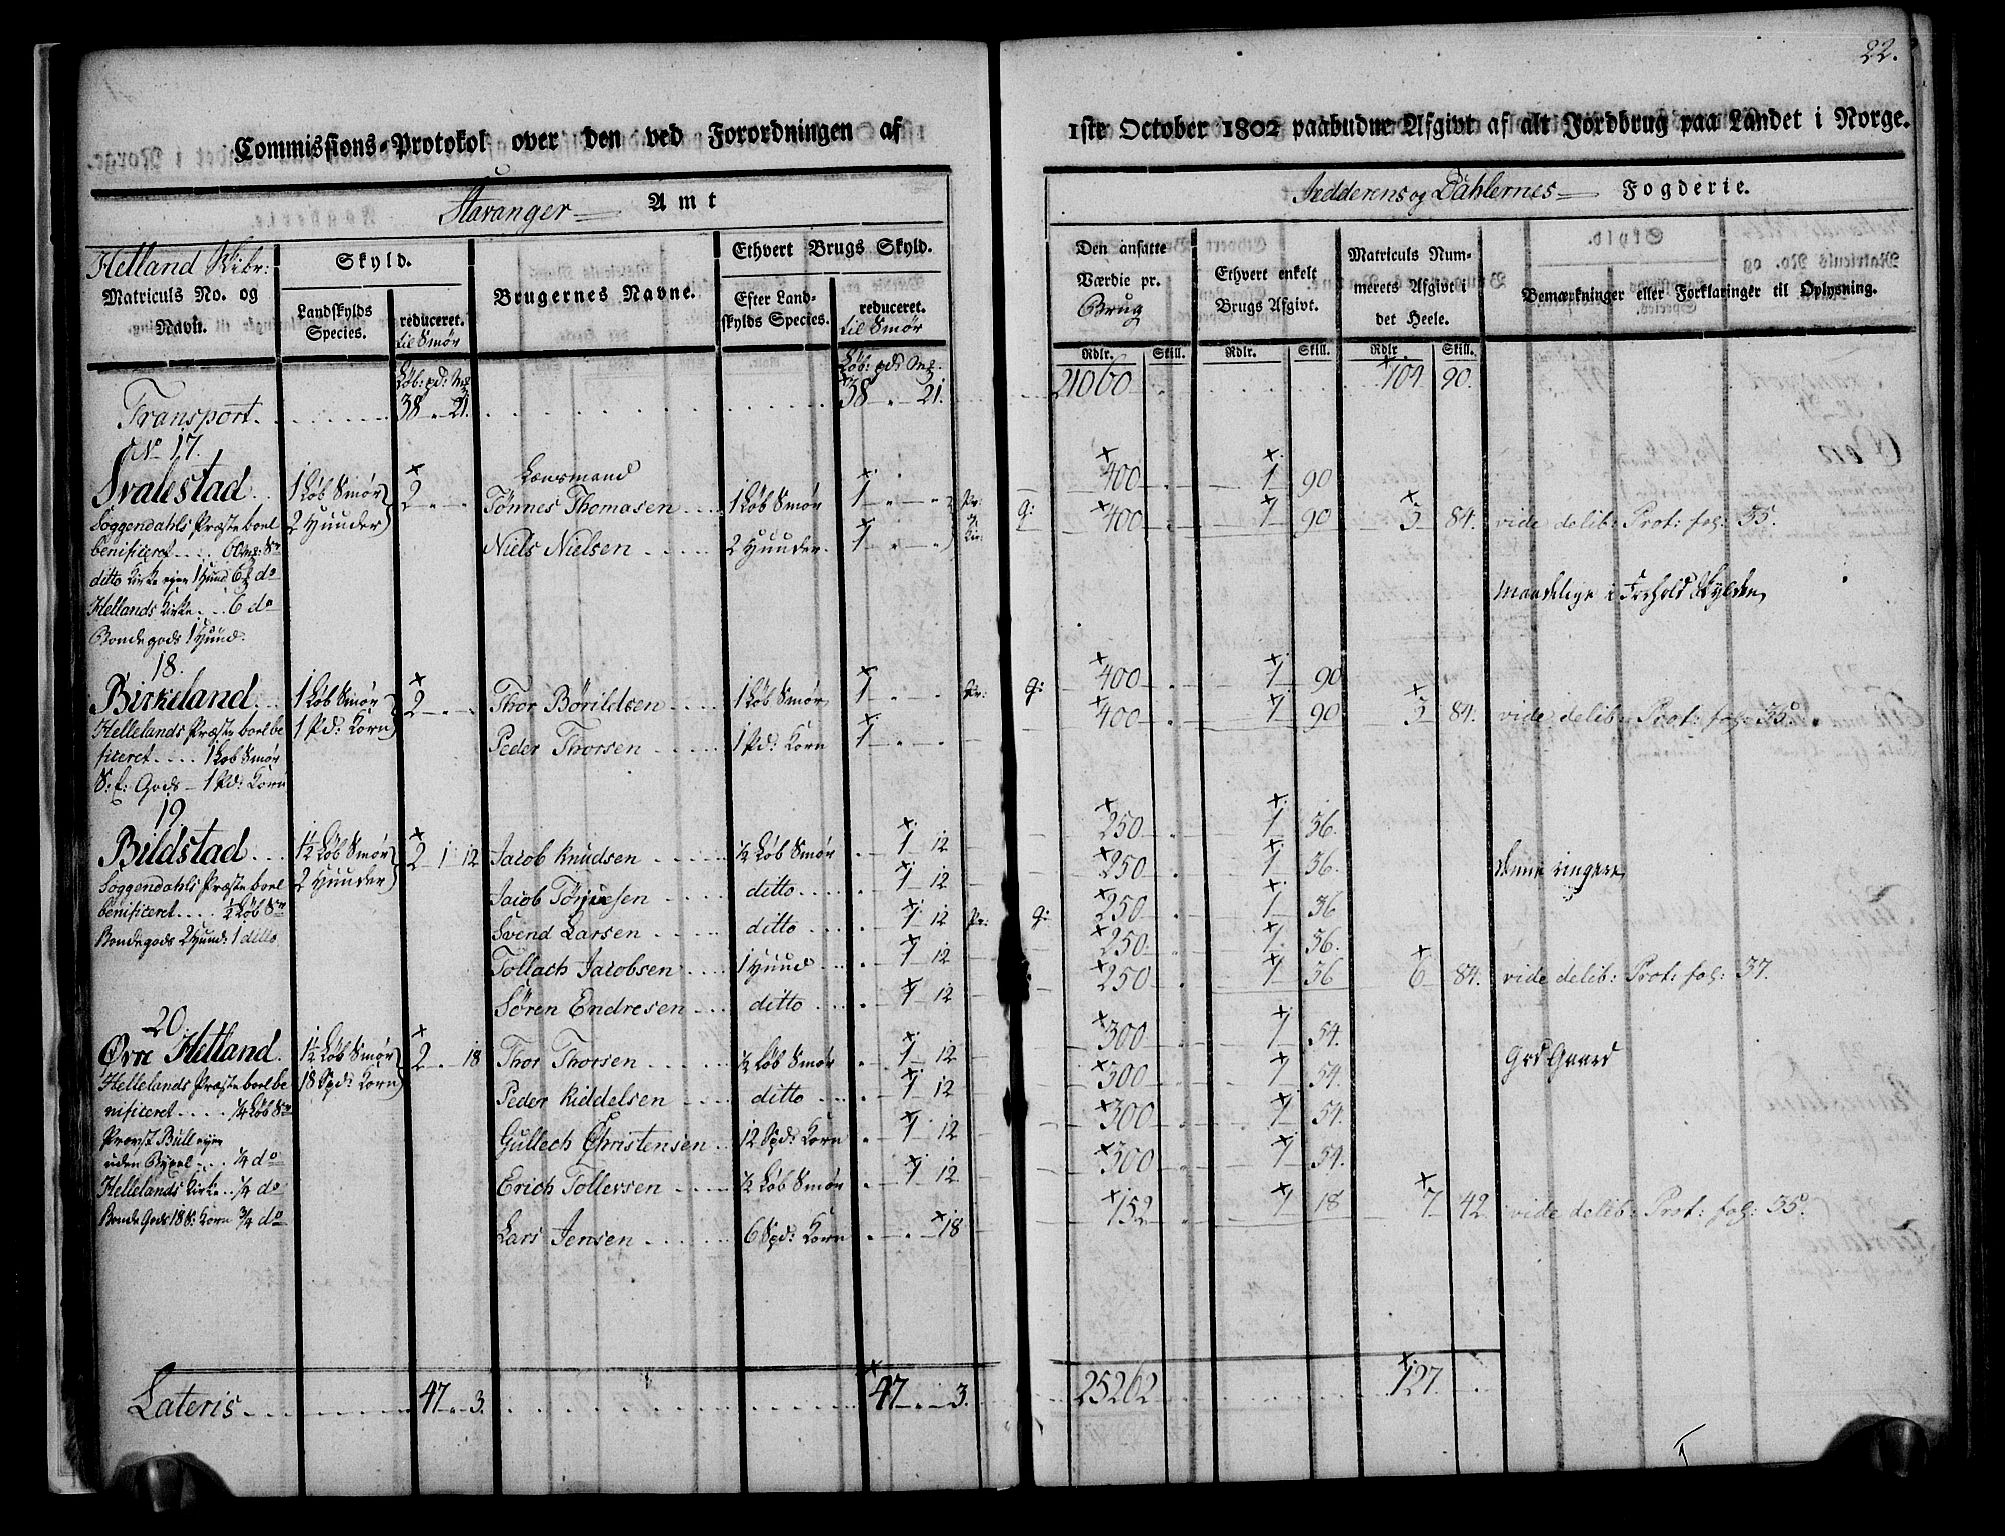 22.
Commissions-Protokol over den ved Forordningen af 1ste October 1802 paabudne Afgivt af alt Jordbrug paa Landet i Norge.
Stavanger Amt
Jedderens og Dahlernes Fogderie.
Helland Skibr:
Matriculs No. og Navn.
Skyld.
Landskylds Species.
reduceret. til Smør
Brugernes Navne.
Ethvert Brugs Skyld.
Efter Landskylds Species.
reduceret. til Smør
Den ansatte Værdie pr. Brug
Ethvert enkelt Brugs Afgivt.
Matriculs Nummerets Afgivt i det Heele.
Bemærkninger eller Forklaringer til Oplysning.
Løb: pd: Mk Løb: pd: Mk. Rdlr. Skill. Rdlr. Skill. Rdlr. Skill.
Transport. 38 " 21. 38 " 21. 21060 104 90.
No 17.
Svalestad 1 Løb Smør 2 Lænsmand 400 1 90
Soggendahls Præsteboel 2 Huuder Tønnes Thomasen 1 Løb Smør 1 400 1 90 3 84. vide delib: Prot: fol: 35.
benificeret 6 Niels Nielsen 2 Huuder. 1
ditto Kirke ejer 1 Huud 6 do
Hellands Kirke 6 do
Bondegods 1 Huud.
18.
Birkeland 1 Løb Smør 2 Thor Børildsen 1 Løb Smør 1 400 1 90
Hellelands Præsteboel be 1 Pd: Korn Peder Thorsen 1 Pd: Korn 1 400 1 90 3 84. vide delib: Prot: fol: 35.
ficeret 1 Løb Smør
Gods 1 Pd: Korn
19.
Bildstad 1½ Løb Smør 2 1 12 Jacob Knudsen ½ Løb Smør 1 12 250 1 36.
Soggendahls Præsteboel 2 Huuder Jacob ditto 1 12 250 1 36.
benificeret ½ Løb Sr Svend Larsen ditto 1 12 250 1 36
Bondegods 2 Huud: 1 ditto Tollach Jacobsen 1 Huud 1 12 250 1 36.
Søren Endresen ditto 1 12 250 1 36 6 84. vide delib: Prot: fol: 37.
20.
Øvre Helland 1½ Løb Smør 2 " 18 Thor Thorsen ½ Løb Smør 1 12 300 1 54.
Hellelands Præsteboel be 18 Spd: Korn Peder Kiddelsen ditto 1 12 300 1 54.
nificeret ¼ Løb Sr Gullech Christensen 12 Spd: Korn 1 12 300 1 54.
Provst Bull ejer Erich Tollevsen ½ Løb Smør 1 12 300 1 54.
uden Bygsel ¼ do Lars Jensen 6 Spd: Korn 18 152 1 18 7 42 vide delib: Prot: fol: 35.
Hellelands Kirke ¼ do
Bonde Gods 18 S: Korn ¾ do
Lateris 47 " 3. 47 " 3. 25262 127